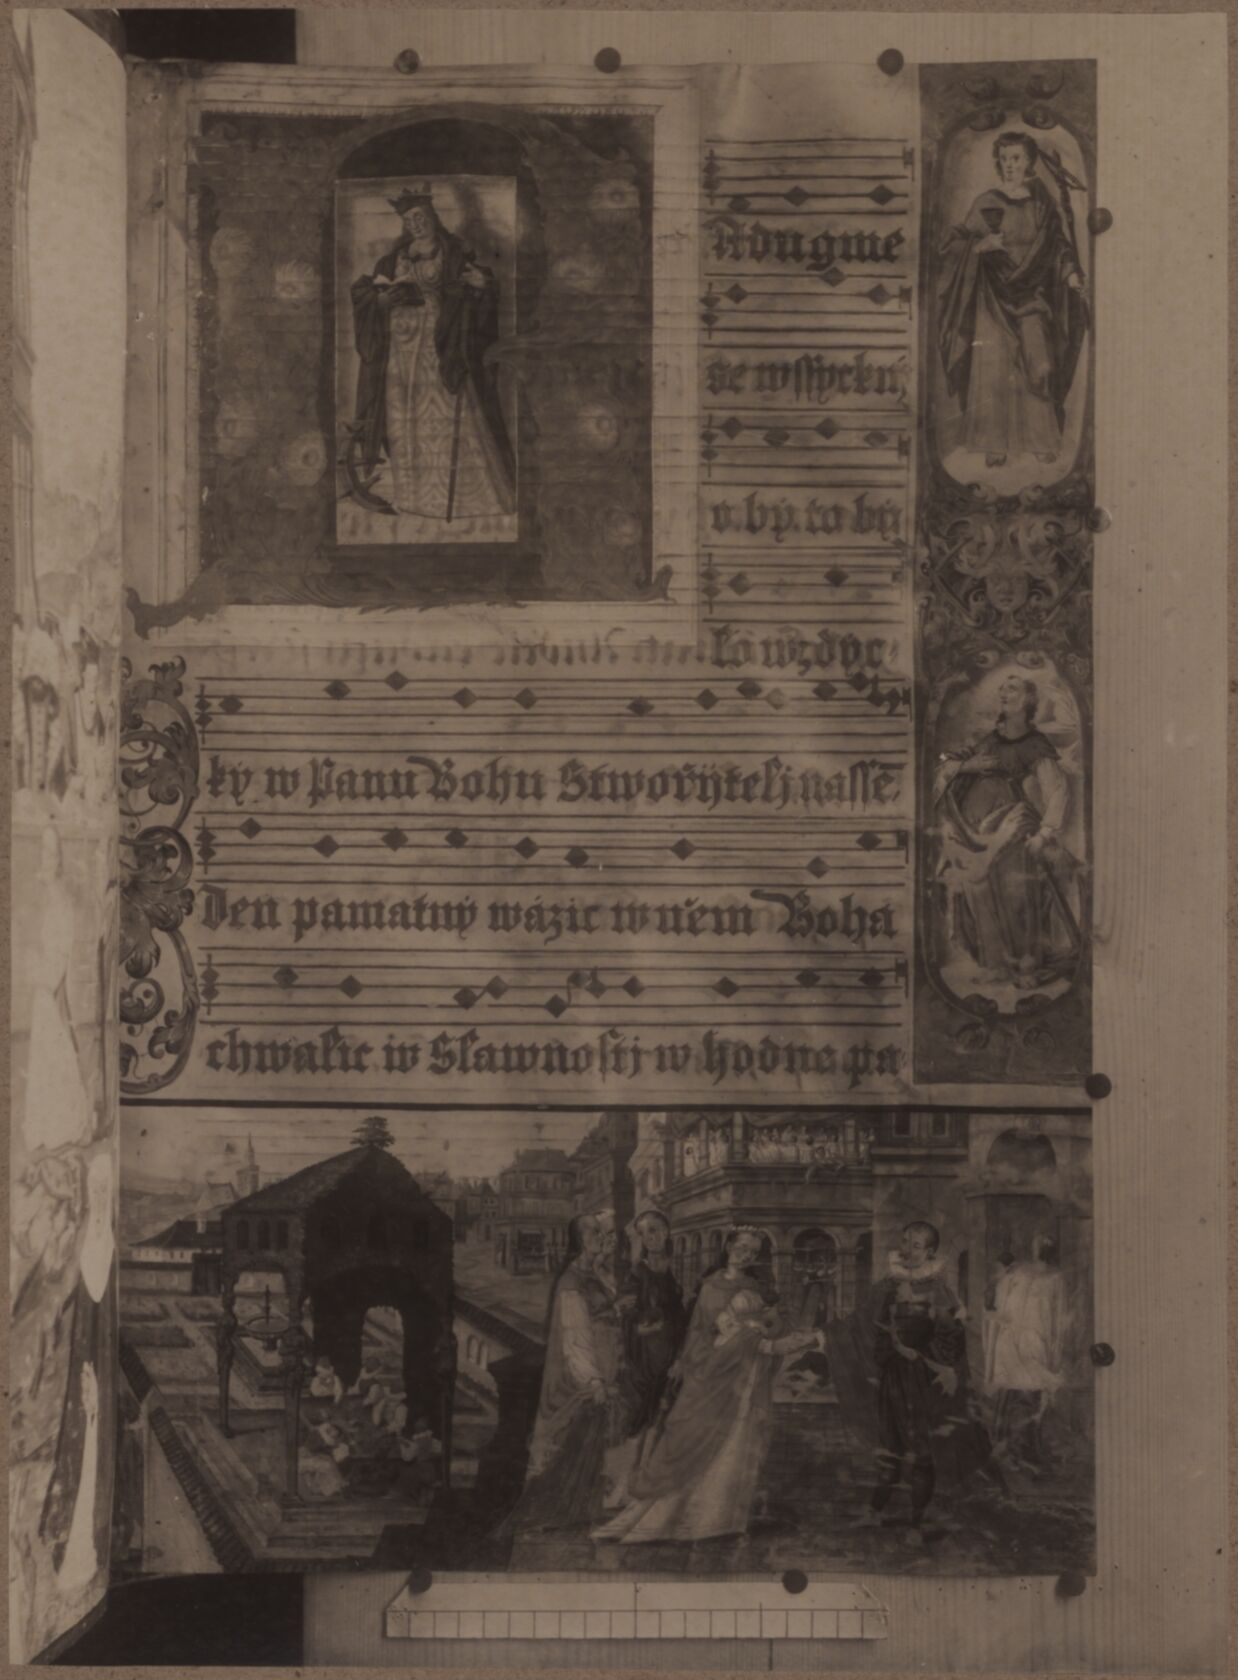 Radugme
se wssyckni
o by to by
lo wzdyc
ky w Panu Bohu Stworÿtelj nassē
Den pamatný wázic w něm Boha
chwalic iv Slawnostj w hodne pa